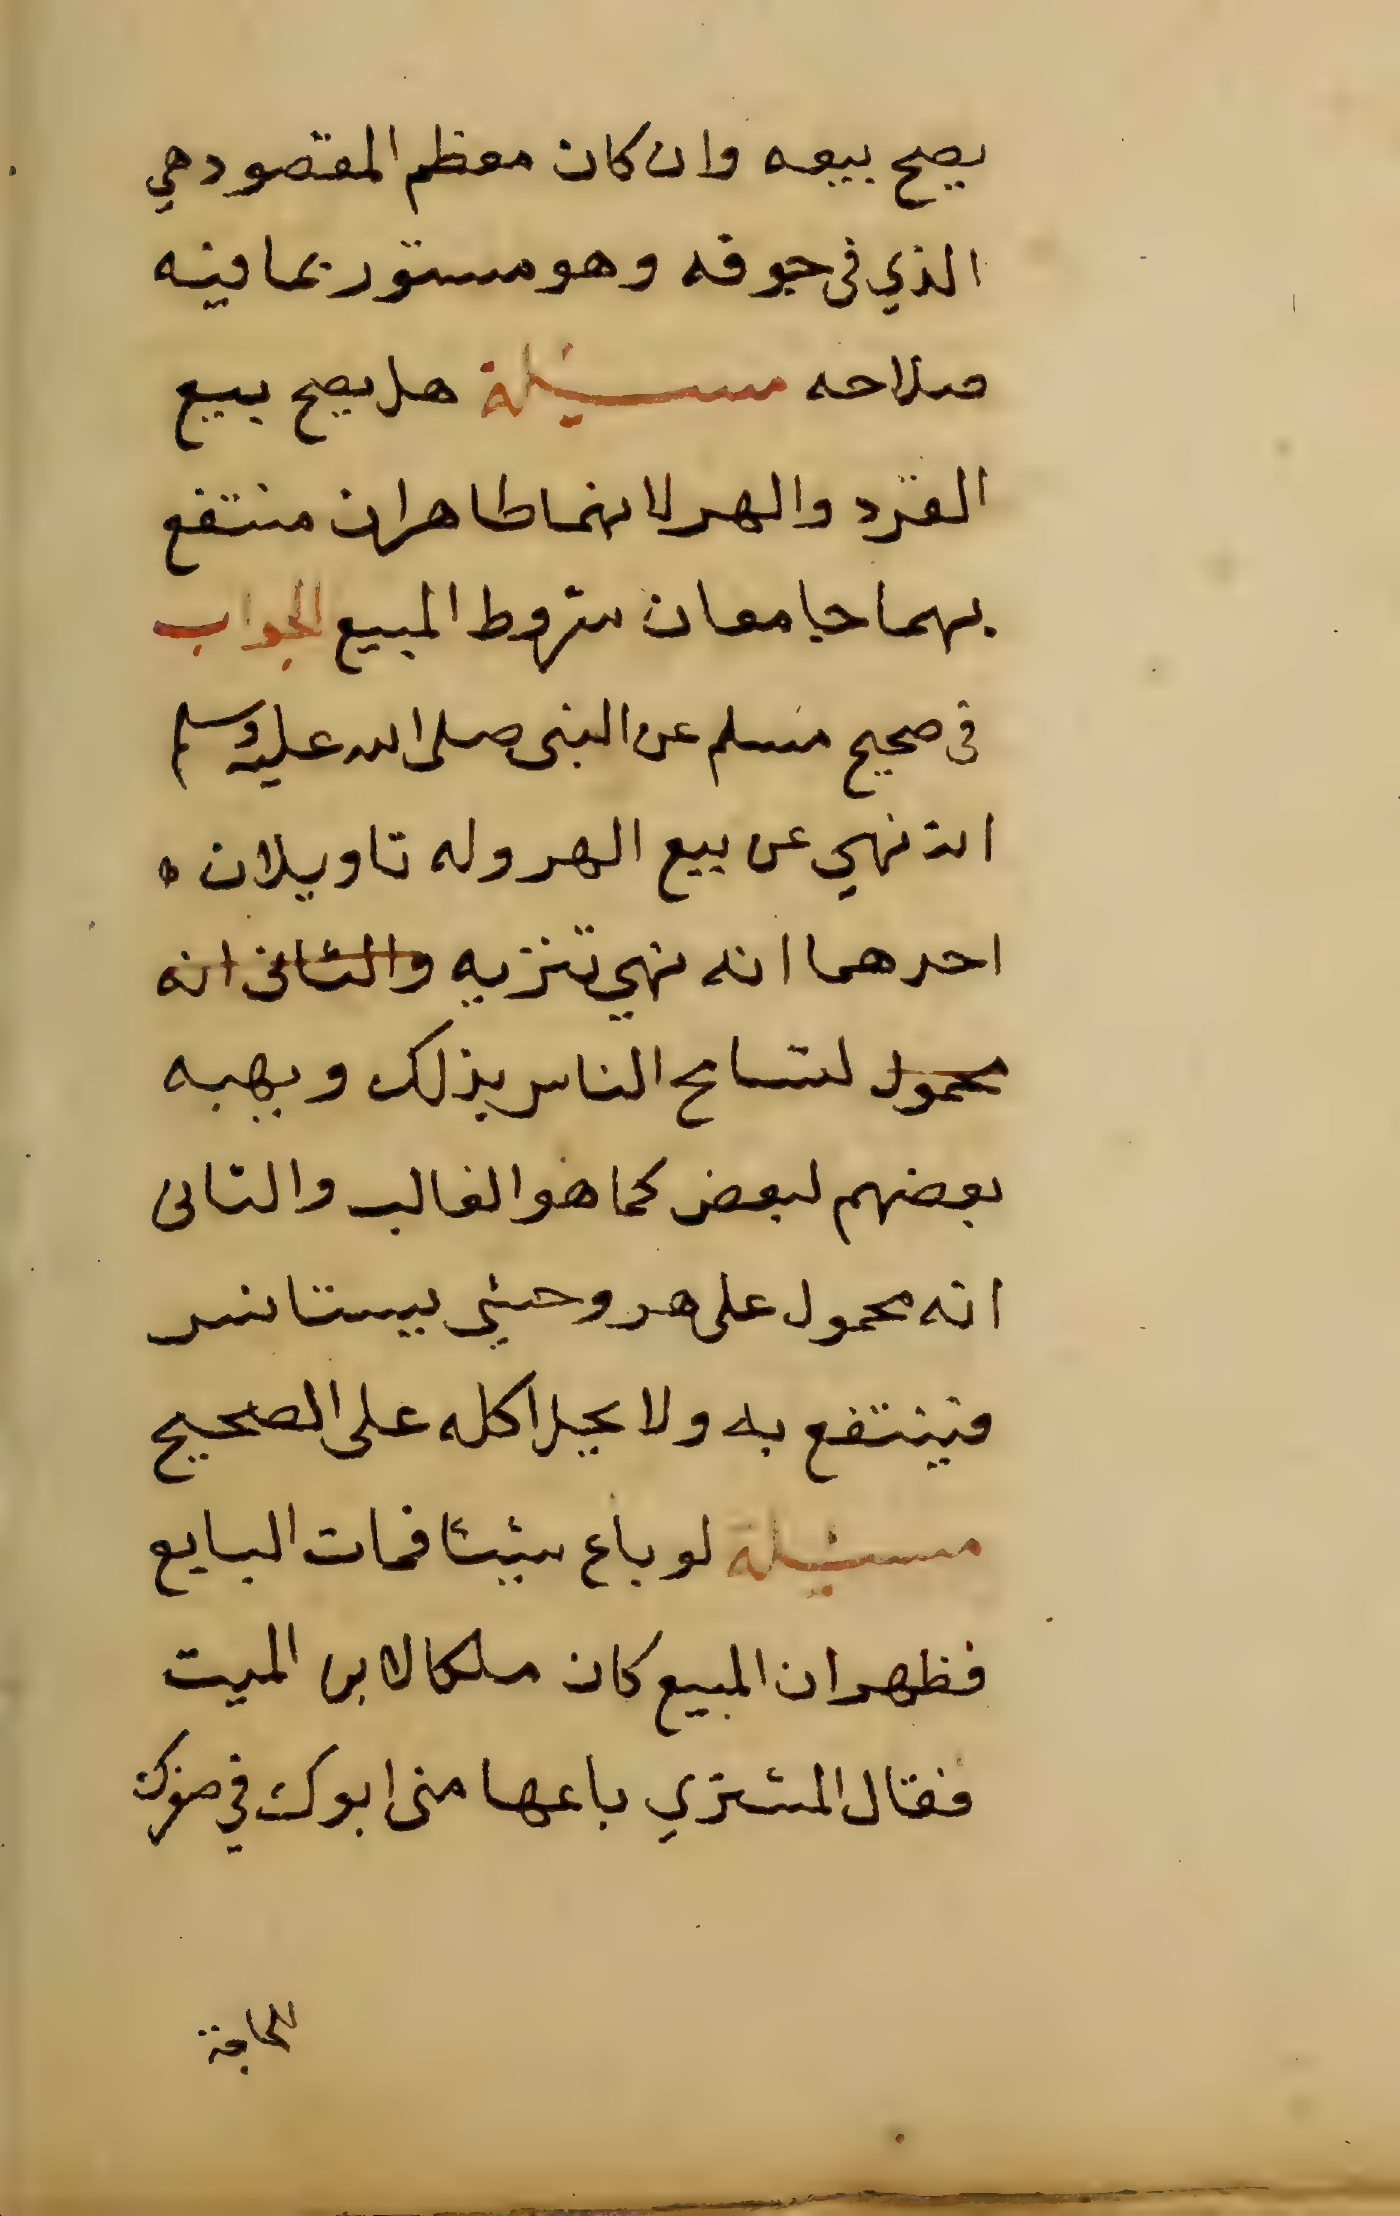 يصح بيعه وان كان معظم المقصود هي
الذي في جوفه وهو مستور بما فيه
صلاحه مسئلة هل يصح بيع
القرد والهر لانهما طاهران منتفع
بهما جامعان شروط المبيع الجواب
في صحيح مسلم عن النبي صلى الله عليه وسلم
انه نهي عن بيع الهر وله تاويلان ه
احدهما انه نهي تنزيه والثاني انه
محمول لتسامح الناس بذلك ويهبه
بعضهم لبعض كما هو الغالب والثاني
انه محمول على هر وحشي يستانس
فينتفع به ولا يحل اكله على الصحيح
مسئلة لو باع شيئا فمات البايع
فظهر ان المبيع كان ملكا لابن الميت
فقال المشتري باعها مني ابوك في صغرك
للحاجة